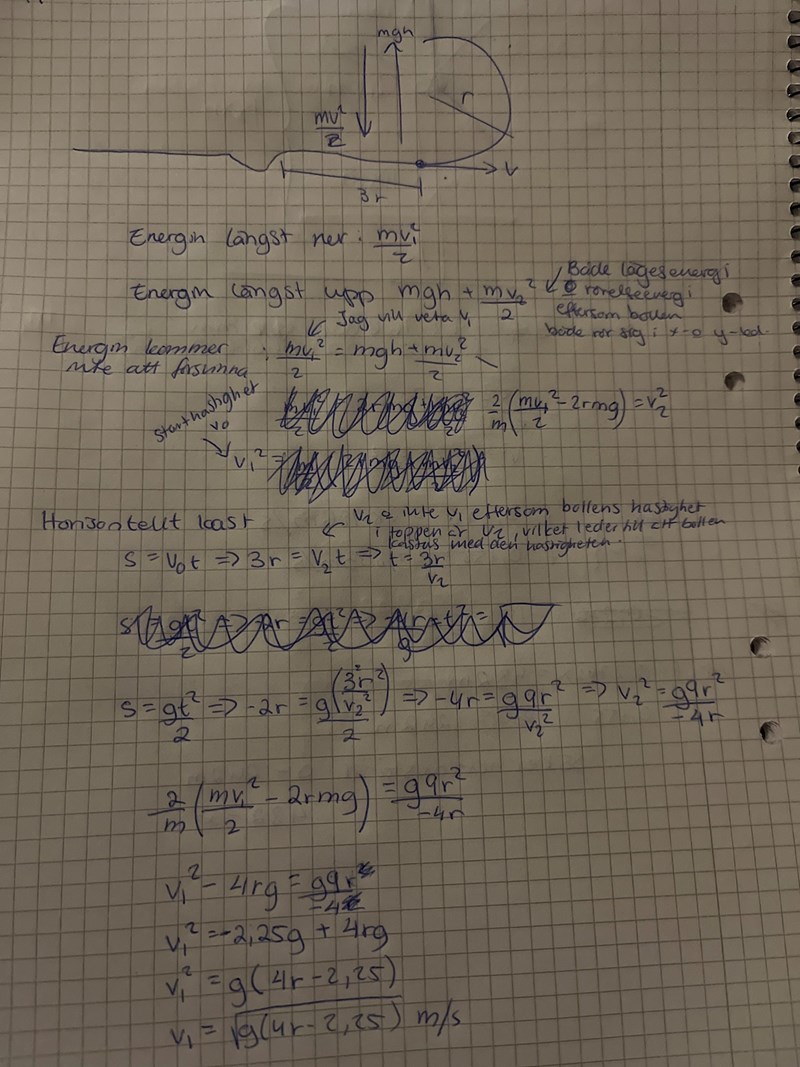 mgh
r
mv²/2
v
3r
Energin längst ner: mv₁²/2
Energin längst upp mgh + mv₂²/2 ↙ Både lägesenergi
& rörelseenergi
eftersom bollen
både rör sig i x- o y-led.
↙ Jag vill veta v₁
Energin kommer inte att försvinna: mv₁²/2 = mgh + mv₂²/2
2/m (mv₁²/2 - 2rmg) = v₂²
starthastighet
v₀
v₁² =
Horisontellt kast
↙ v₂ o inte v₁ eftersom bollens hastighet
i toppen är v₂, vilket leder till att bollen
kastas med den hastigheten.
s = v₀t => 3r = v₂t => t = 3r/v₂
s = gt²/2 => -2r = g(3²r²/v₂²)/2 => -4r = g9r²/v₂² => v₂² = g9r²/-4r
2/m (mv₁²/2 - 2rmg) = g9r²/-4r
v₁² - 4rg = g9r/-4
v₁² = -2,25g + 4rg
v₁² = g(4r - 2,25)
v₁ = √g(4r - 2,25) m/s